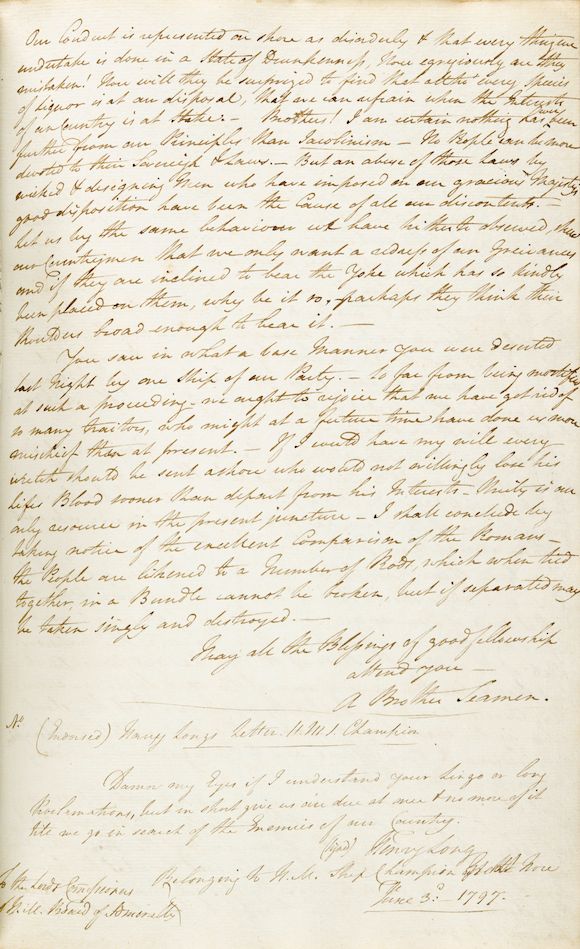 Our Conduct is represented on shore as disorderly & that every thing we
undertake is done in a State of Drunkenness, How egregiously are they
mistaken! How will they be surprized to find that altho every species
of Liquor is at our disposal, that we can refrain when the Interests
of our Country is at Stake. – Brothers! I am certain nothing has ever been
further from our Principles than Jacobinism – No People can be more
devoted to their Sovereign & Laws. – But an abuse of those Laws by
wicked & designing Men who have imposed on our gracious Majestys
good disposition have been the Cause of all our discontents. –
Let us by the same behaviour we have hitherto observed, shew
our Countrymen that we only want a redress of our Greivances
and if they are inclined to bear the Yoke which has so kindly
been placed on them, why be it so, perhaps they think their
Shoulders broad enough to bear it. –
You saw in what a base Manner you were deserted
last Night by one Ship of our Party. – So far from being mortified
at such a proceeding – we ought to rejoice that we have got rid of
so many traitors, who might at a future time have done us more
mischief than at present. – If I could have my will every
wretch should be sent ashore who would not willingly lose his
lifes Blood sooner than depart from his Interests – Unity is our
only resource in the present juncture – I shall conclude by
taking notice of the excellent Comparism of the Romans –
the People are likened to a Number of Rods, which when tied
together, in a Bundle cannot be broken, but if separated may
be taken singly and destroyed. –
May all the Blessings of good fellowship
attend you –
A Brother Seaman.
No
(Endorsed) Henry Longs Letter H.M.S. Champion
Damn my Eyes if I understand your Lingo or long
Proclamations, but in short give us our due at once & no more of it
till we go in search of the Enemies of our Country.
(Sgd) Henry Long
Belonging to H.M. Ship Champion at the Nore
June 3d 1797. –
To the Lords Commissioners
of the Board of Admiralty